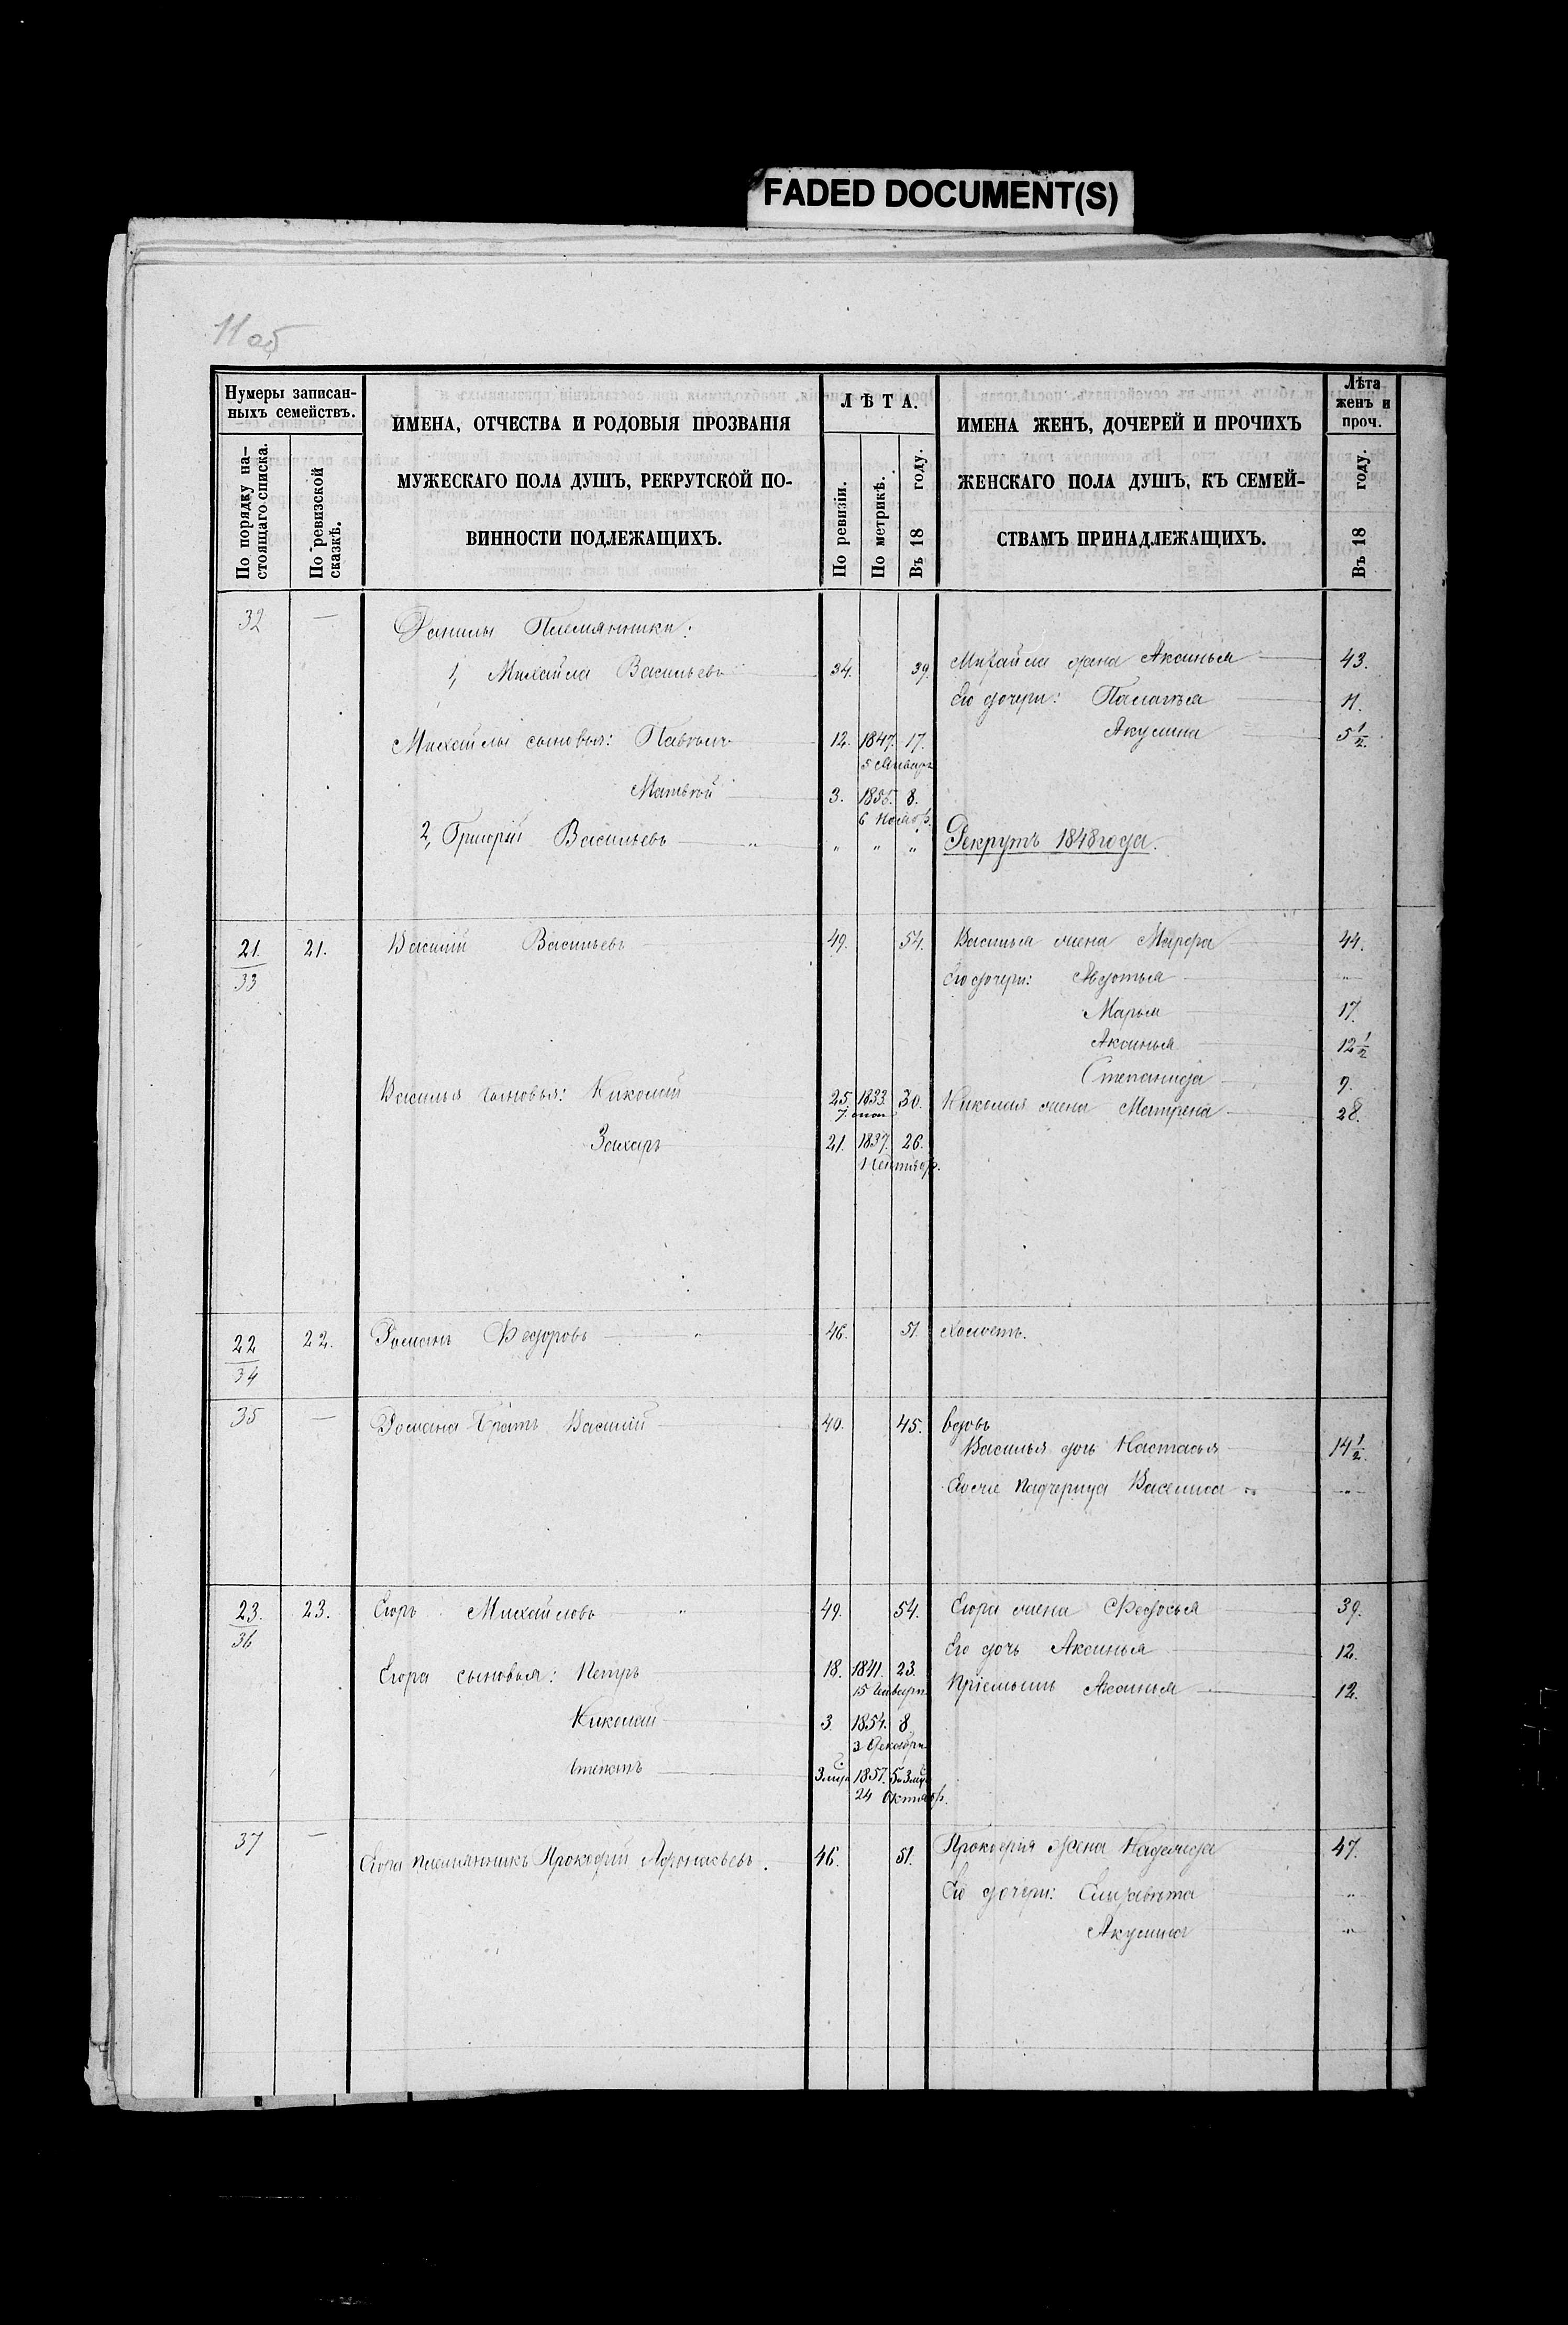 FADED DOCUMENT(S)
11 об
Нумеры записан-
ныхъ семействъ.
По порядку на-
стоящаго списка.
По ревизской
сказкѣ.
ИМЕНА, ОТЧЕСТВА И РОДОВЫЯ ПРОЗВАНІЯ
МУЖЕСКАГО ПОЛА ДУШЪ, РЕКРУТСКОЙ ПО-
ВИННОСТИ ПОДЛЕЖАЩИХЪ.
ЛѢТА.
По ревизіи.
По метрикѣ.
Въ 18 году.
ИМЕНА ЖЕНЪ, ДОЧЕРЕЙ И ПРОЧИХЪ
ЖЕНСКАГО ПОЛА ДУШЪ, КЪ СЕМЕЙ-
СТВАМЪ ПРИНАДЛЕЖАЩИХЪ.
Лѣта
женъ и
проч.
Въ 18 году.
32 — Данилы Племянники:
1, Михайла Васильевъ 34. 39. Михайла жена Аксинья 43.
Его дочери: Палагья 11.
Михайлы сыновья: 12. 1847. 17. Акулина 5 1/2.
5 Января
Матвей 3. 1855. 8.
6 Ноябр.
2, Григорій Васильевъ " " " " Рекрутъ 1848 года.
21. 21. Василій Васильевъ 49. 54. Василья жена Марфа 44.
33 Его дочери: Авдотья "
Марья 17.
Аксинья 12 1/2
Степанида 9.
Василья сыновья: Николай 25. 1833. 30. Николая жена Матрена 28.
7
Захаръ 21. 1837. 26.
1 Сентябр.
22 22. Романъ Федоровъ " 46. 51. Холостъ.
34
35 — Романа Братъ Василій 40. 45. вдовъ
Василья дочь Настасья 14 1/2.
Его же падчерица Василиса "
23. 23. Егоръ Михайловъ " 49. 54. Егора жена Федосья 39.
36 Его дочь Аксинья 12.
Егора сыновья: Петръ 18. 1841. 23. Пріемышъ Аксинья 12.
15 Января
Николай 3. 1854. 8
3 Декабря
Степанъ 3 мца 1857. 5 3 мц
24 Октябр.
37 — Егора племянникъ Прокофій Афонасьевъ. 46. 51. Прокофія жена Надежда 47.
Его дочери: Елизавета "
Акулина "